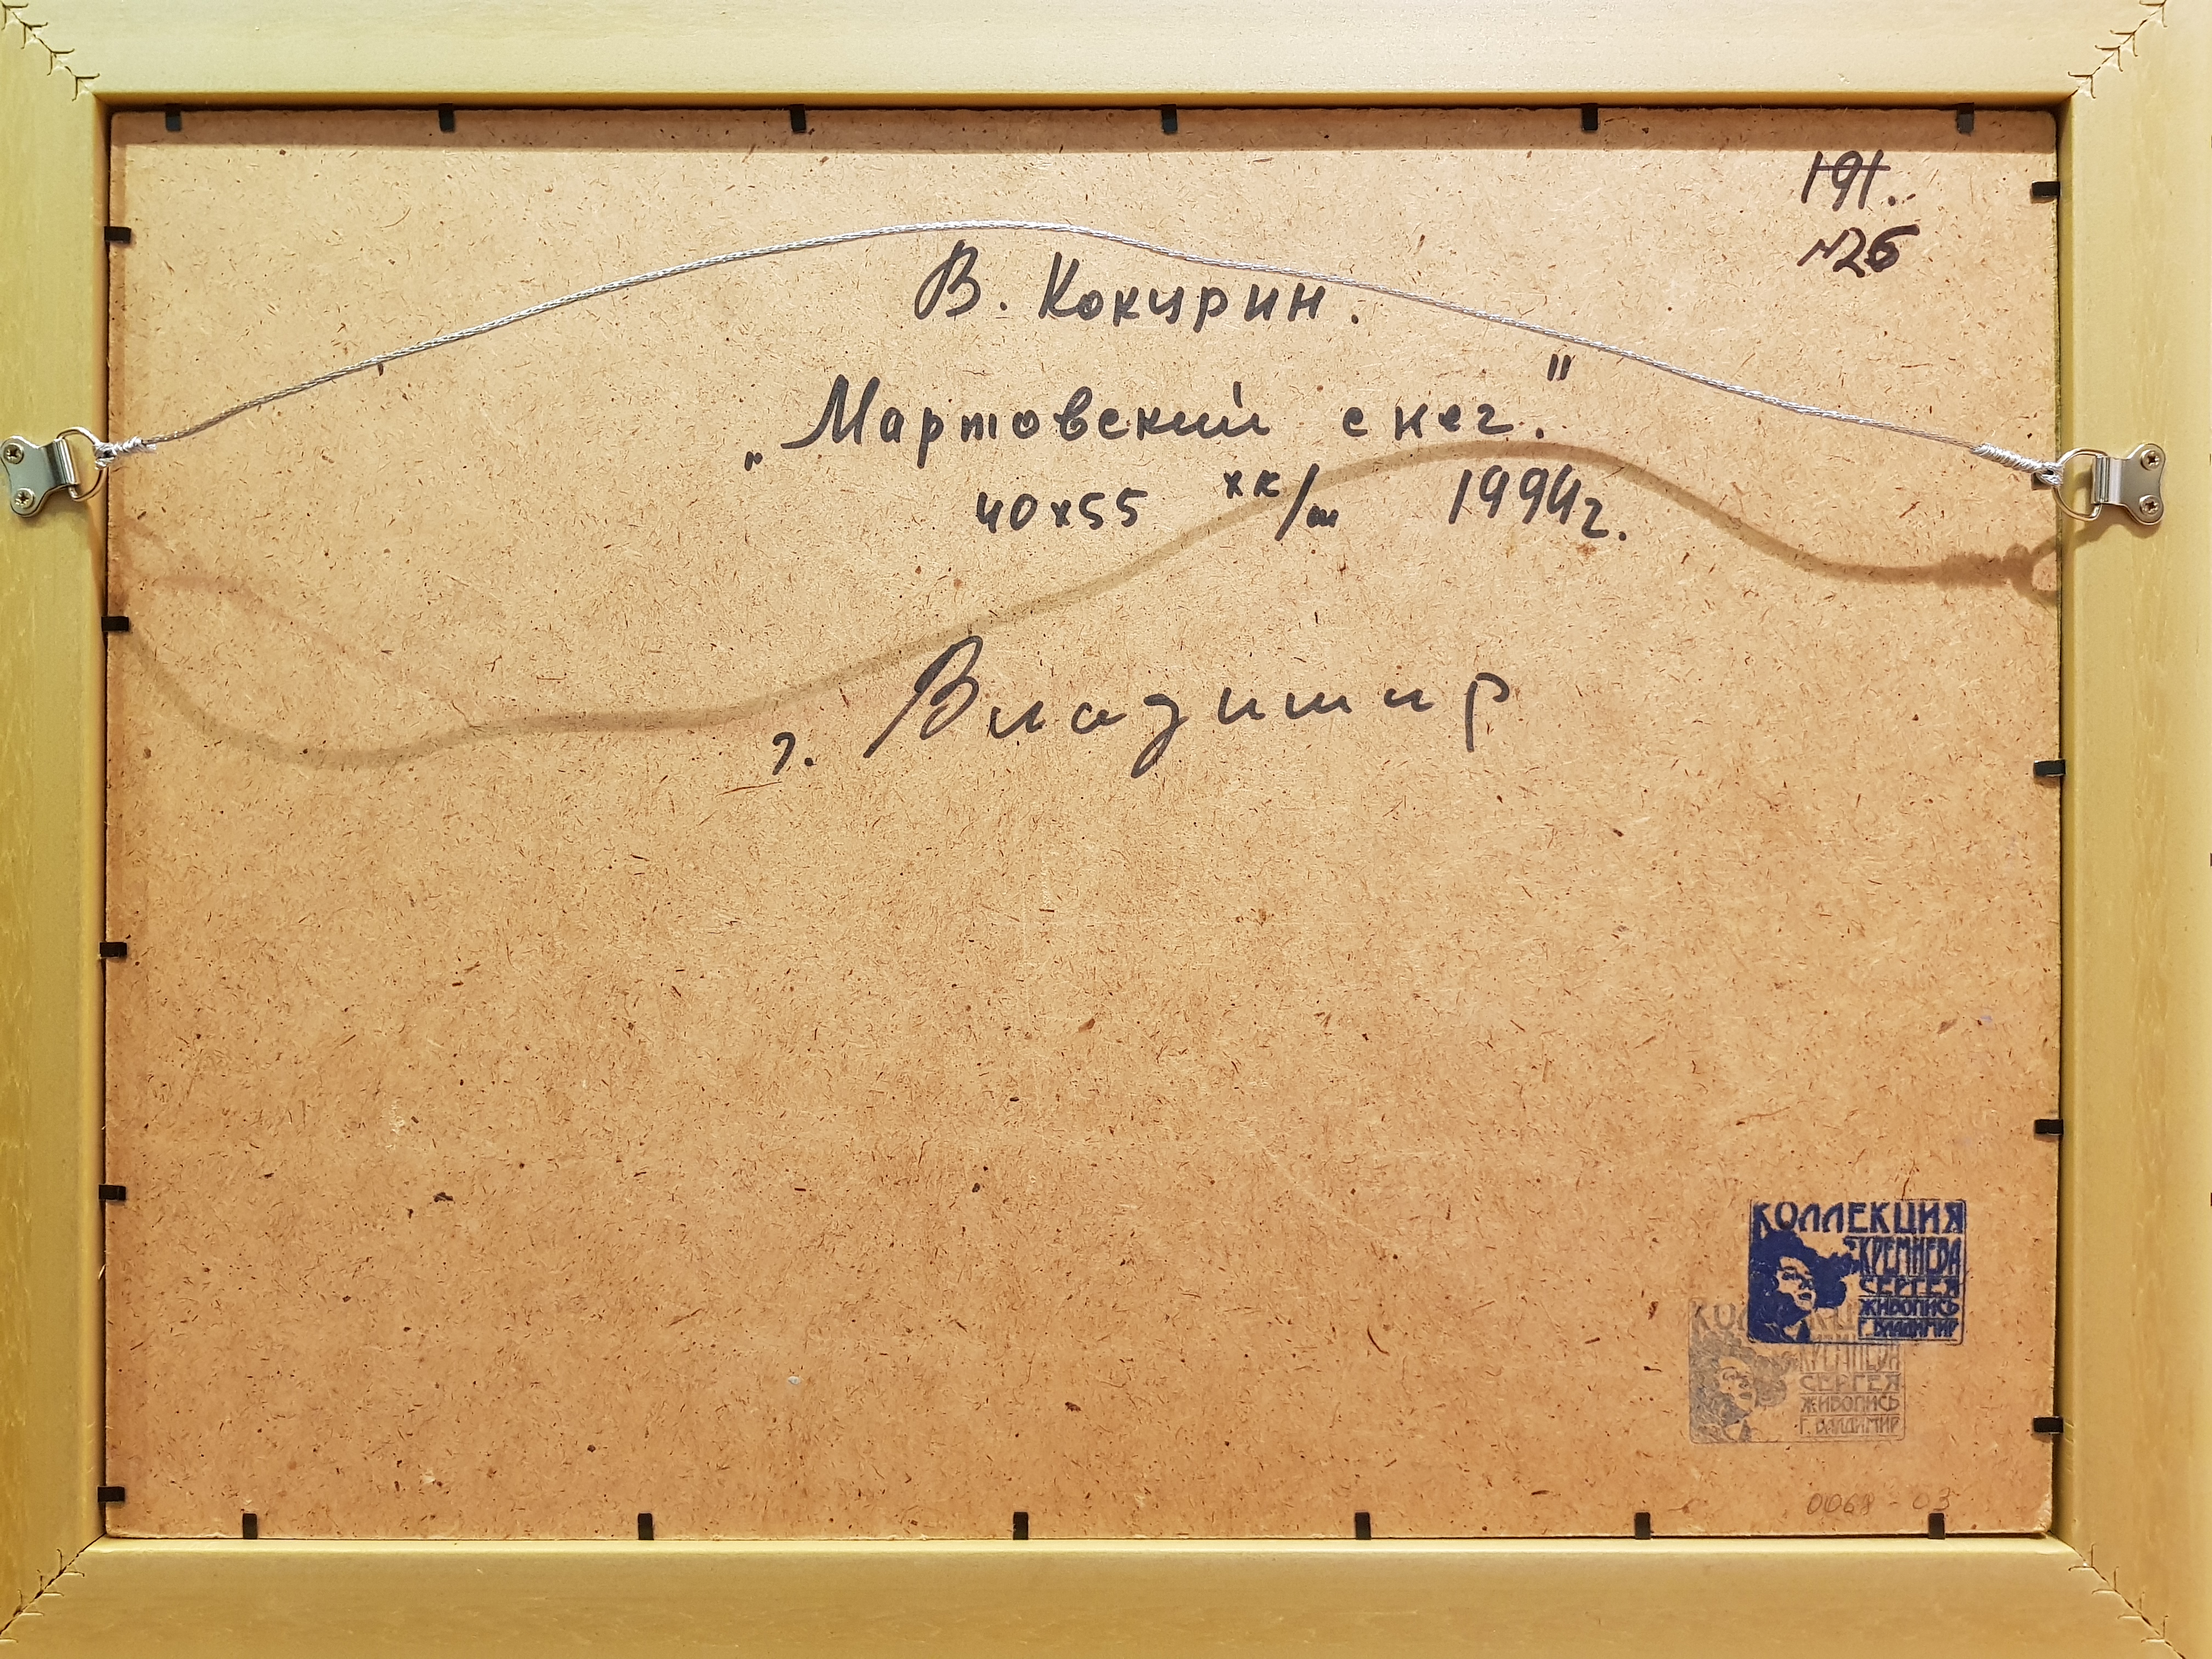 191.
№26
В. Кокурин.
„Мартовский снег."
40х55 хк/м 1994г.
г. Владимир
КОЛЛЕКЦИЯ
КРЕМНЕВА
СЕРГЕЯ
ЖИВОПИСЬ
Г. ВЛАДИМИР
КРЕМНЕВА
СЕРГЕЯ
ЖИВОПИСЬ
Г. ВЛАДИМИР